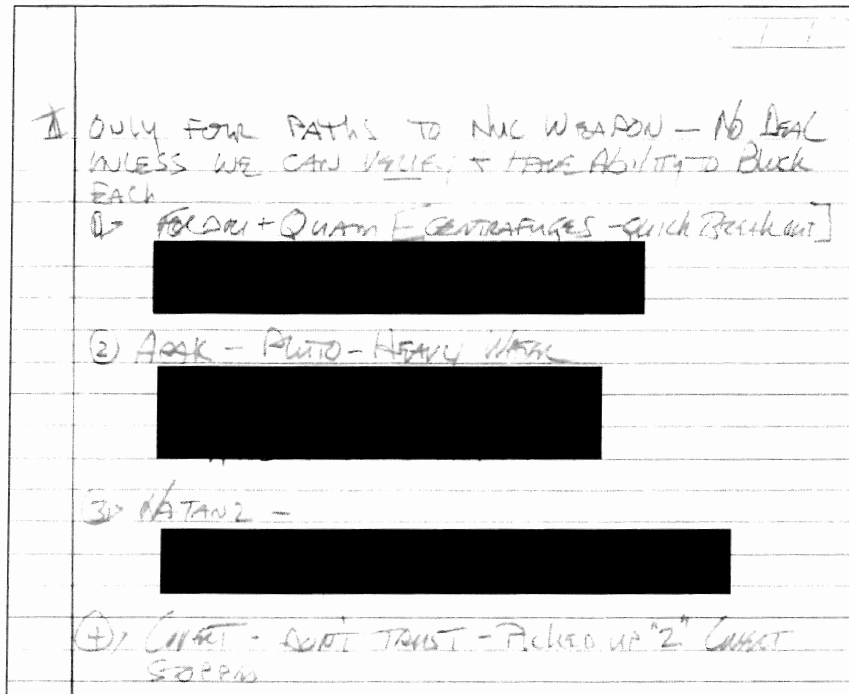 II ONLY FOUR PATHS TO NUC WEAPON – NO DEAL
UNLESS WE CAN VERIFY + HAVE ABILITY TO BLOCK
EACH
1) FORDOW + QUAM CENTRAFUGES - QUICK BREAKOUT]
(2) ARAK – PLUTO – HEAVY WATER
3) NATANZ –
(4) COVERT - DON'T TRUST - PICKED UP "2" COVERT